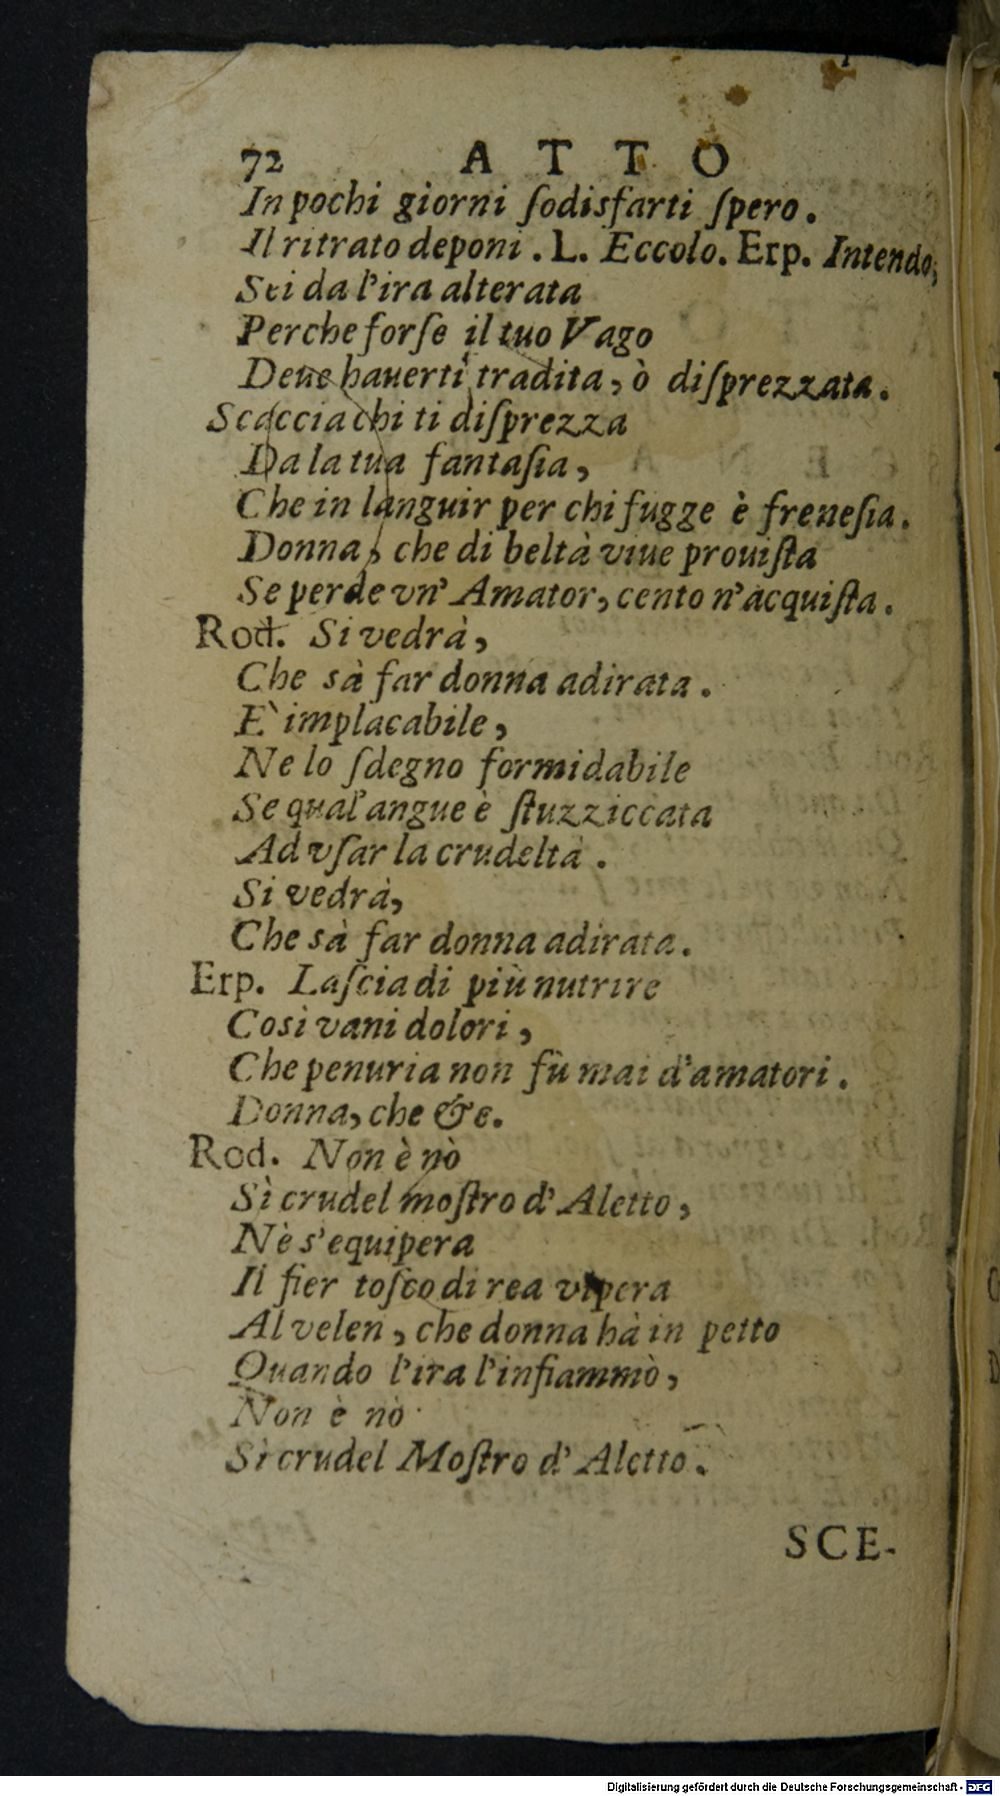 72 ATTO
In pochi giorni ſodisfarti ſpero.
Il ritrato deponi. L. Eccolo. Erp. Intendo,
Sei da l'ira alterata
Perche forſe il tuo Vago
Deue hauerti tradita, ò diſprezzata.
Scaccia chi ti diſprezza
Da la tua fantaſia,
Che in languir per chi fugge è freneſia.
Donna, che di beltà viue prouiſta
Se perde vn' Amator, cento n'acquiſta.
Rod. Si vedrà,
Che sà far donna adirata.
E' implacabile,
Ne lo ſdegno formidabile
Se qual'angue è ſtuzziccata
Ad vſar la crudeltà.
Si vedrà,
Che sà far donna adirata.
Erp. Laſcia di più nutrire
Così vani dolori,
Che penuria non fù mai d'amatori.
Donna, che &c.
Rod. Non è nò
Sì crudel moſtro d'Aletto,
Nè s'equipera
Il fier toſco di rea vipera
Al velen, che donna hà in petto
Quando l'ira l'infiammò,
Non è nò
Sì crudel Moſtro d'Aletto.
SCE-
Digitalisierung gefördert durch die Deutsche Forschungsgemeinschaft - DFG